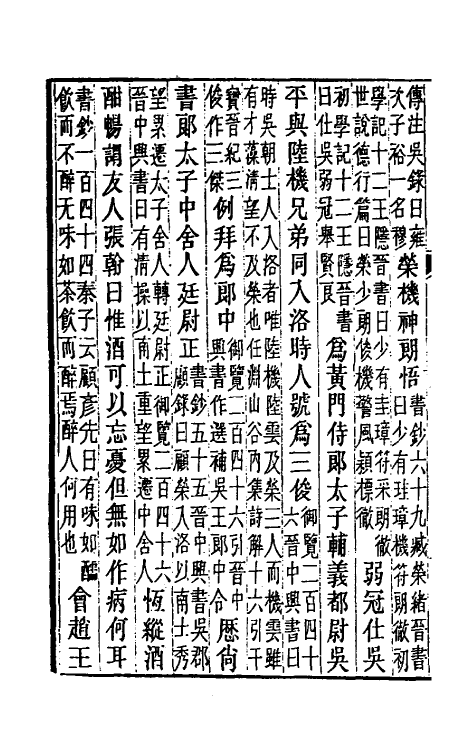 傳注吳錄曰雍次子裕一名穆榮機神朗悟書鈔六十九臧榮緒晉書曰少有珪璋機符朗徹初
學記十二王隱晉書曰少有珪璋符采朗徹世說德行篇曰榮少朗俊機警風穎標徹弱冠仕吳
初學記十二王隱晉書曰仕吳弱冠舉賢良爲黃門侍郎太子輔義都尉吳
平與陸機兄弟同入洛時人號爲三俊御覽二百四十六晉中興書曰
時吳朝士人入洛者唯陸機陸雲及榮三人而機雲雖有才藻清望不及榮也任淵山谷內集詩解十六引干
寶晉紀三俊作三傑例拜爲郎中御覽二百四十六引晉中興書作選補吳王郎中令歷尚
書郎太子中舍人廷尉正書鈔五十五晉中興書吳郡顧錄曰顧榮入洛以南士秀
望累遷太子舍人轉廷尉正御覽二百四十六晉中興書曰有清操以南土重望累遷中舍人恆縱酒
酣暢謂友人張翰曰惟酒可以忘憂但無如作病何耳
書鈔一百四十四秦子云顧彥先曰有味如醨飲而不醉无味如茶飲而醉焉醉人何用也會趙王